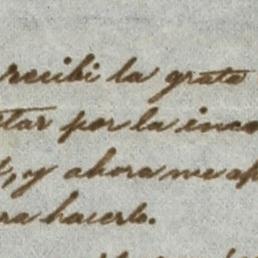 recibi la grata
tar por la inco
, y ahora me ap
ra hacerlo.